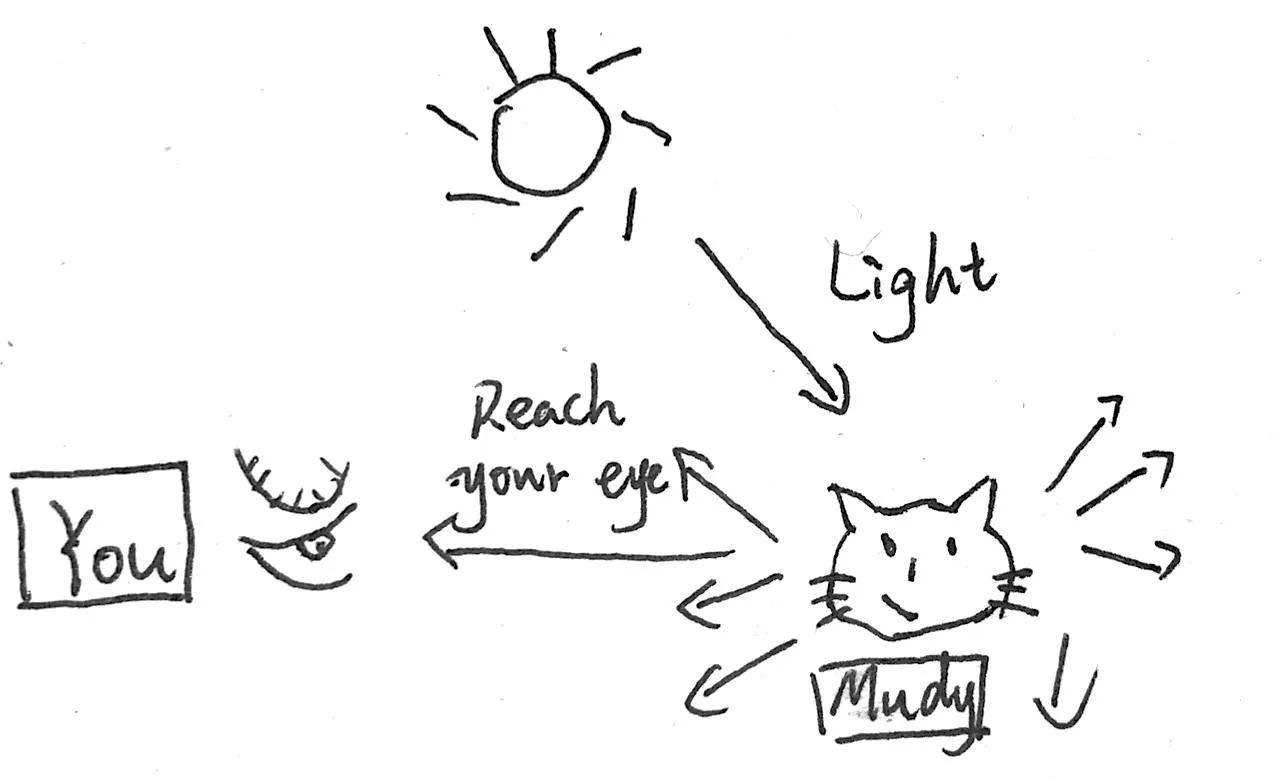 Light
Reach
your eye
You
Mudy